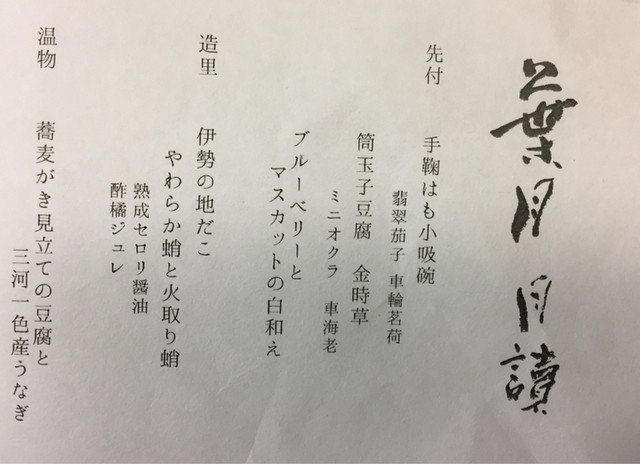 葉月 目讀
先付 手鞠はも小吸碗
翡翠茄子 車輪茗荷
筒玉子豆腐 金時草
ミニオクラ 車海老
ブルーベリーと
マスカットの白和え
造里 伊勢の地だこ
やわらか蛸と火取り蛸
熟成セロリ醤油
酢橘ジュレ
温物 蕎麦がき見立ての豆腐と
三河一色産うなぎ